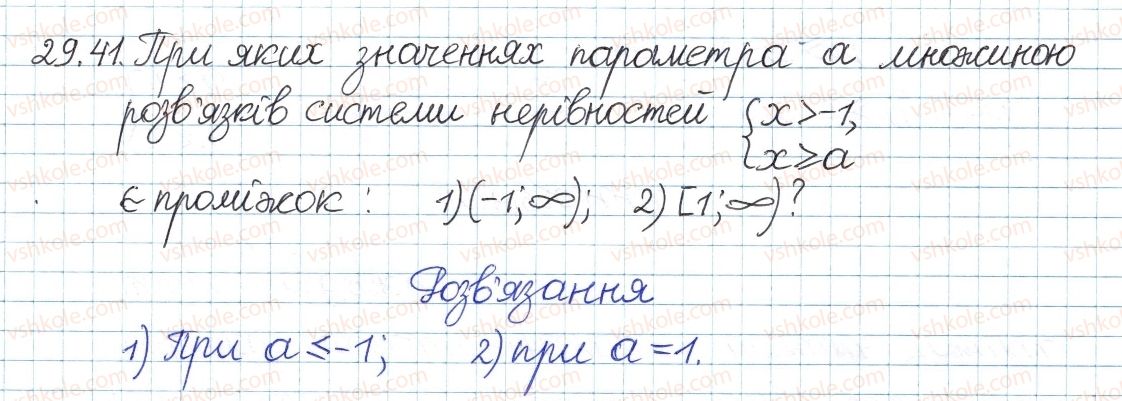 29.41. При яких значеннях параметра а множиною
розв'язків системи нерівностей { x > -1,
x ⩾ a
є проміжок : 1) (-1; ∞); 2) [1; ∞)?
Розв'язання
1) При a ≤ -1; 2) при a = 1.